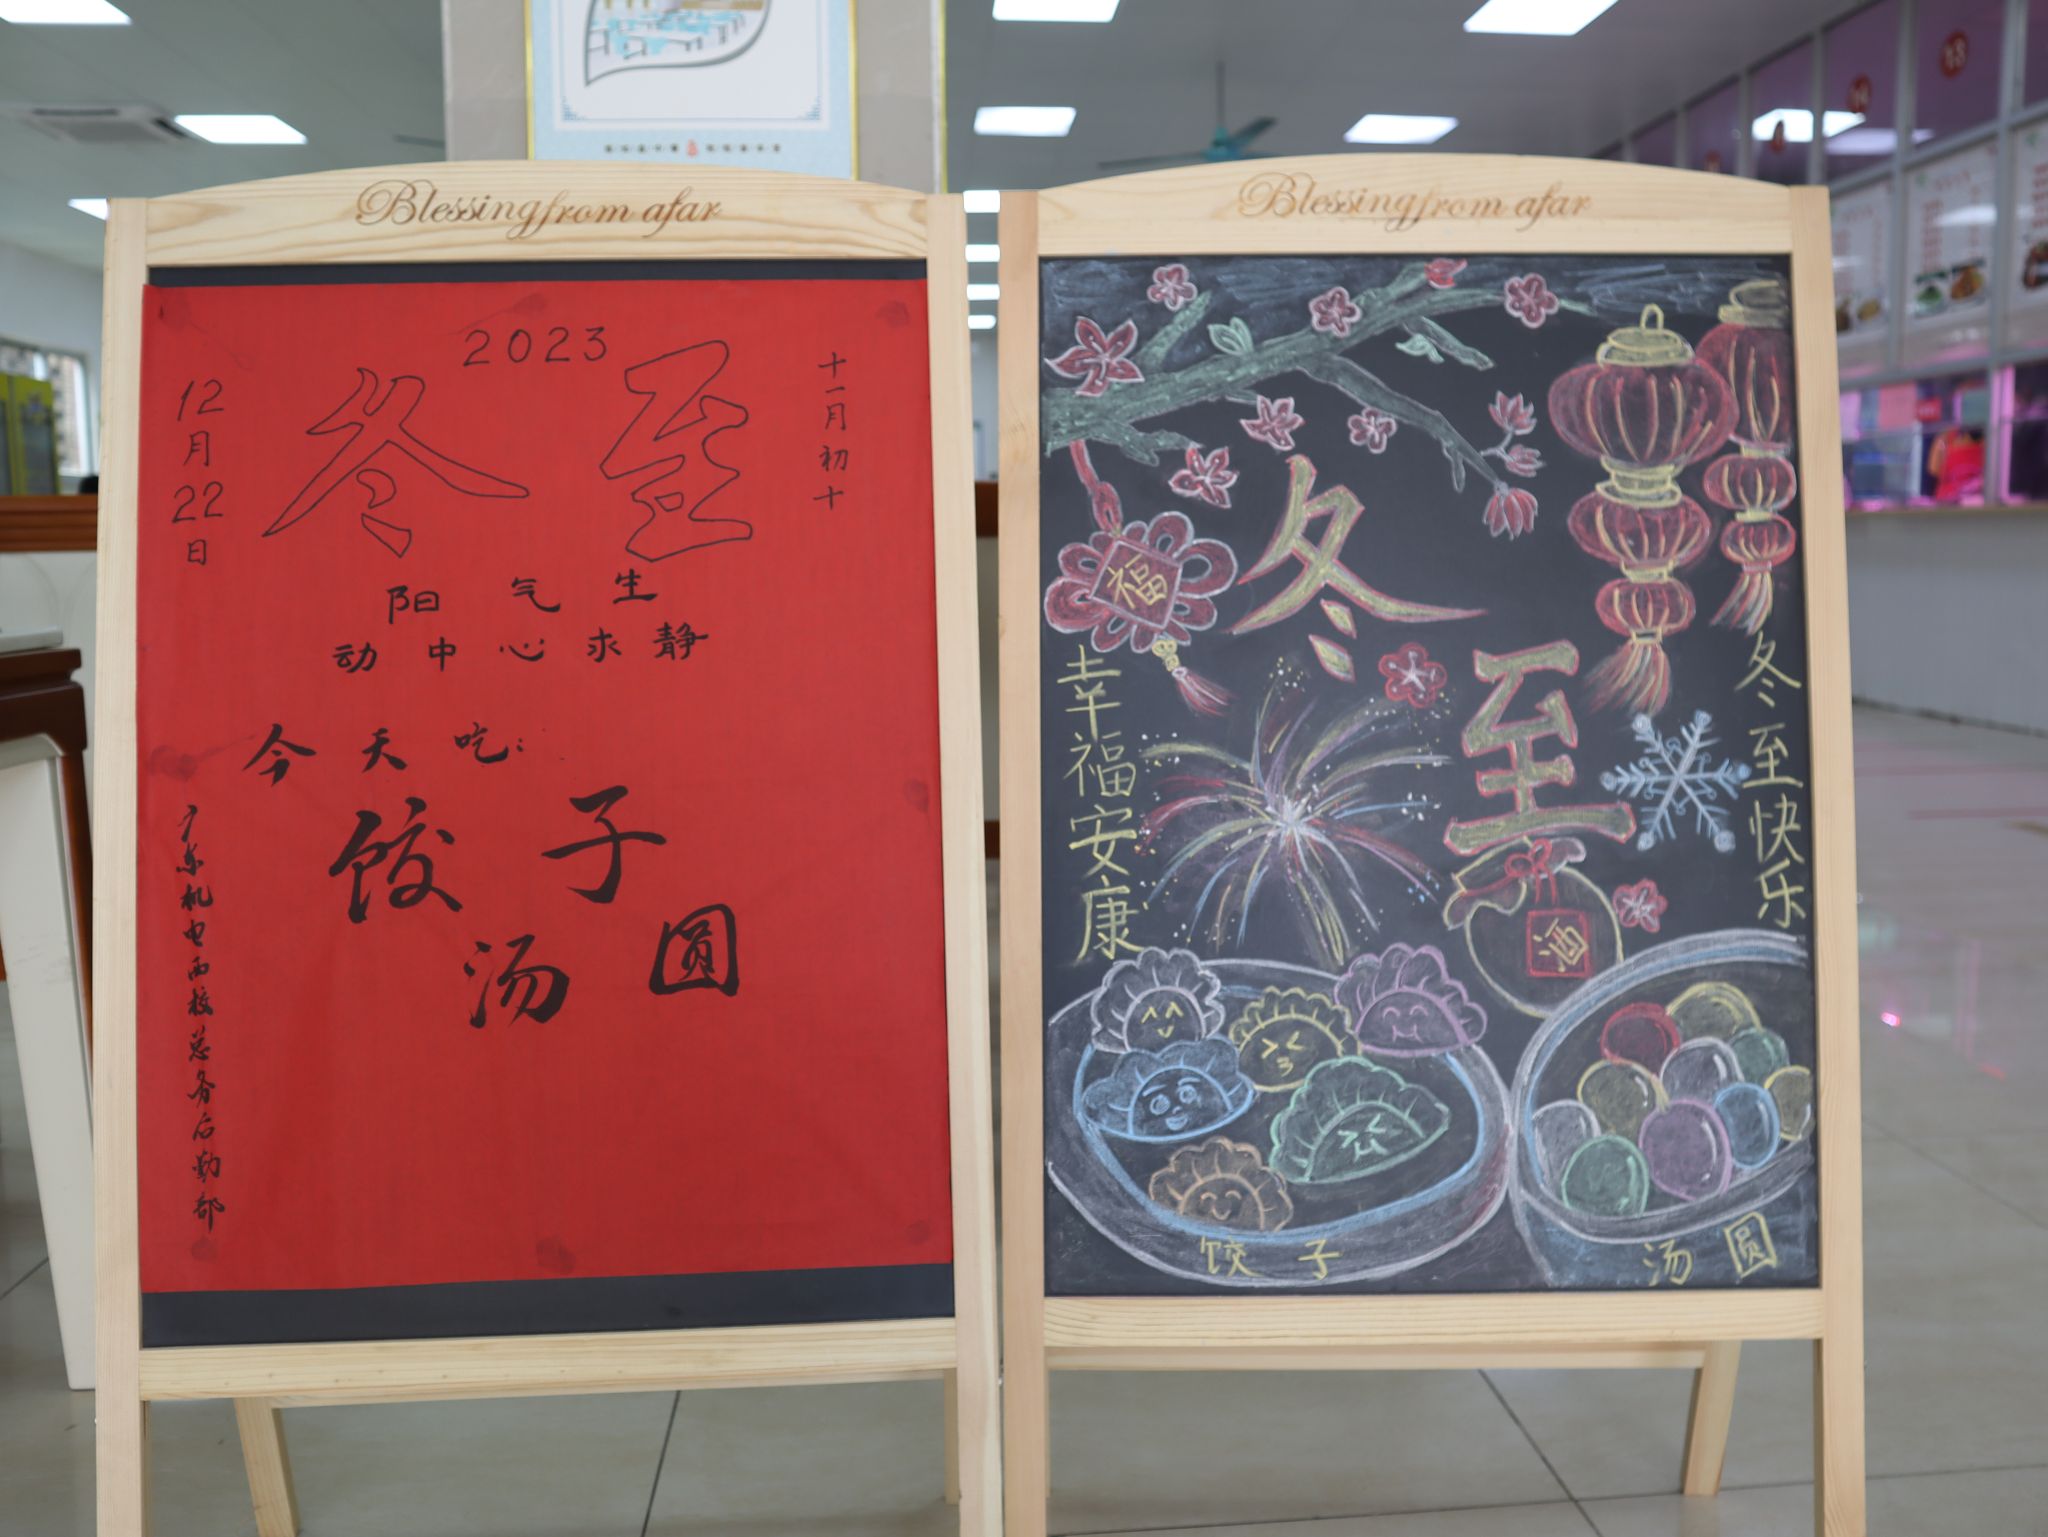 Blessing from afar
2023
冬至
12月22日
十一月初十
阳气生
动中心求静
今天吃:
饺子
汤圆
广东机电西校总务后勤部
Blessing from afar
福
冬至
幸福安康
冬至快乐
酒
饺子
汤圆